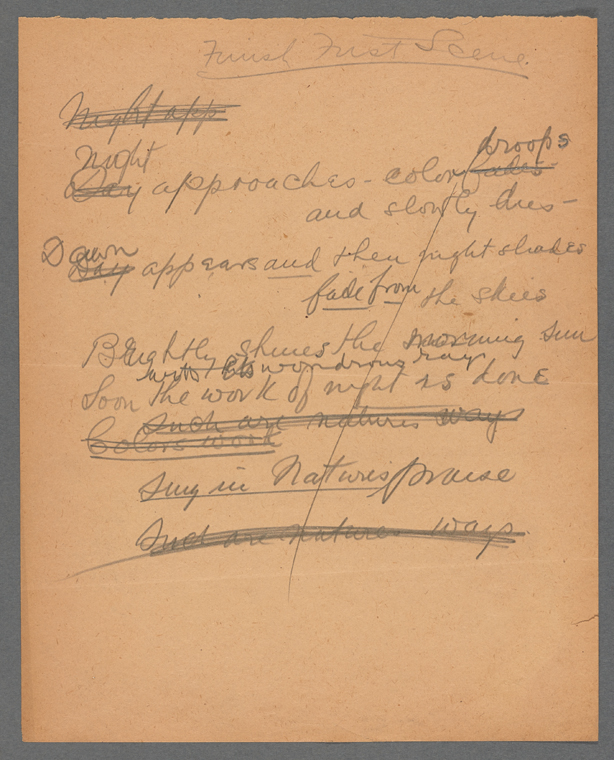 Finish First Scene
Night app
Night
droops
Day approaches - color fades
and slowly dies -
Dawn
Day appears and then night shades
fade from the skies
Brightly shines the morning sun
with its wondrous ray
Soon the work of night is done
Such are natures ways
Colors work
Sing in Natures praise
Such are natures ways